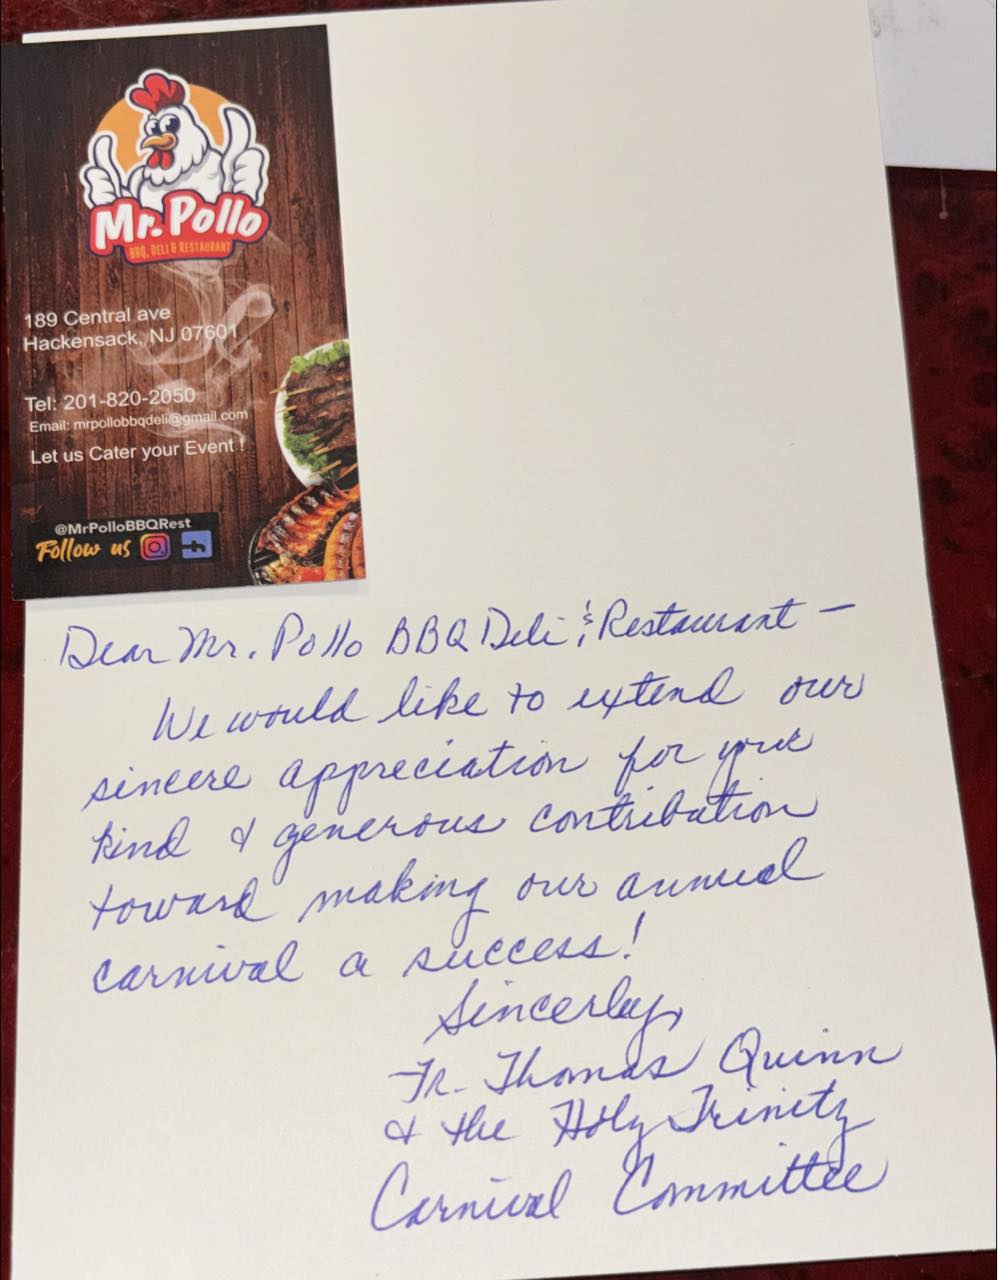 Mr. Pollo
BBQ, DELI & RESTAURANT
189 Central ave
Hackensack, NJ 07601
Tel: 201-820-2050
Email: mrpollobbqdeli@gmail.com
Let us Cater your Event !
@MrPolloBBQRest
Follow us
Dear Mr. Pollo BBQ Deli & Restaurant —
We would like to extend our
sincere appreciation for your
kind & generous contribution
toward making our annual
carnival a success!
Sincerley,
Fr. Thomas Quinn
& the Holy Trinity
Carnival Committee